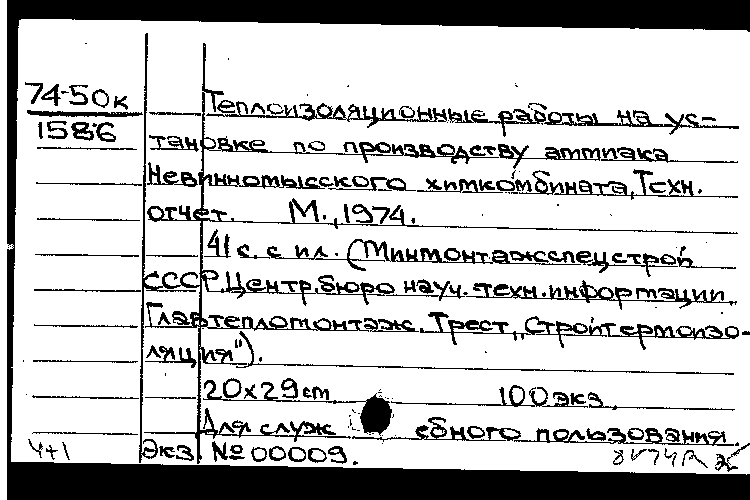 74-50к
1586
Теплоизоляционные работы на ус-
тановке по производству аммиака
Невинномысского химкомбината. Техн.
отчет. М., 1974.
41 с. с ил. (Минмонтажспецстрой
СССР. Центр. бюро науч.-техн. информации.
Главтепломонтаж. Трест „Стройтермоизо-
ляция").
20х29 cm. 100 экз.
Для служебного пользования.
4+1 Экз. № 00009.